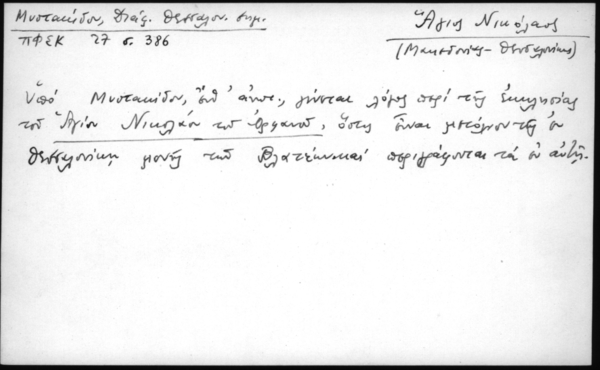 Μυστακίδου, Διάφ. Θεσσαλον. σημ.
ΠΦΣΚ 27 σ. 386
Ἅγιος Νικόλαος
(Μακεδονίας - Θεσσαλονίκης)
Ὑπό Μυστακίδου, ἔνθ' ἀνωτ., γίνεται λόγος περί τῆς ἐκκλησίας
τοῦ Ἁγίου Νικολάου τοῦ Ὀρφανοῦ, ὅστις εἶναι μετόχιον τῆς ἐν
Θεσσαλονίκῃ μονῆς τῶν Βλαταίων καί περιγράφονται τά ἐν αὐτῇ.